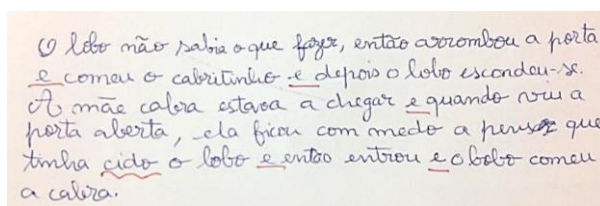 O lobo não sabia o que fazer, então arrombou a porta
e comeu o cabritinho e depois o lobo escondeu-se.
A mãe cabra estava a chegar e quando viu a
porta aberta, ela ficou com medo a pensar que
tinha cido o lobo e então entrou e o bobo comeu
a cabra.